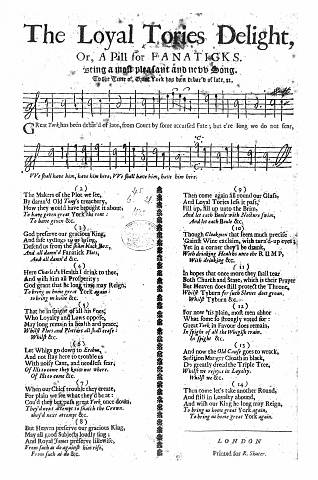 The Loyal Tories Delight,
Or, A Pill for FANATICKS.
Being a most pleasant and new Song.
To the Tune of, Great York has been debar'd of late, &c.
GReat York has been debar'd of late, from Court by some accursed Fate; but e're long we do not fear,
We shall have him, have him here, We shall have him, have him here.
(2)
The Makers of the Plot we see,
By damn'd Old Tony's treachery,
How they would have brought it about;
To have given great York the rout:
To have given &c.
(3)
God preserve our gracious King,
And safe tydings us to bring,
Defend us from the
And all damn'd Fanatick Plots,
And all damn'd &c.
(4)
Here Charles's Health I drink to thee,
And with him all Prosperity;
God grant that he long time may Reign,
To bring us home great York again:
to bring us home &c.
(5)
That he in spight of all his Foes,
Who Loyalty and Laws oppose,
May long remain in health and peace;
Whilst Plots and Plotters all shall cease:
Whilst &c.
(6)
Let Whigs go down to Erebus,
And not stay here to trouble us
With noisy Cant, and needless fear,
Of Ills to come they know not where.
Of Ills to come &c.
(7)
When our Chief trouble they create,
For plain we see what they'd be at:
Could they but push great York once down,
They'd next attempt to snatch the Crown.
they'd next attempt &c.
(8)
But Heaven preserve our gracious King,
May all good Subjects loudly sing;
And Royal James preserve likewise,
From such as do against him rise,
From such as do &c.
(9)
Then come again fill round our Glass,
And Loyal Tories less it pass;
Fill up, fill up unto the Brim,
And let each Boule with Nectar swim,
And let each Boule &c.
(10)
Though Cloakmen that seem much precise
'Gainst Wine exclaim, with turn'd-up eyes;
Yet in a corner they'l be drunk,
With drinking Healths unto the RUMP,
With drinking &c.
(11)
In hopes that once more they shall tear
Both Church and State, which is their Prayer
But Heaven does still protect the Throne,
Whilst Tyburn for such Slaves does groan,
Whilst Tyburn &c.
(12)
For now 'tis plain, most men abhor
What some so strongly voted for:
Great York in Favour does remain,
In spight of all the Whigish train.
In spight &c.
(13)
And now the Old Cause goes to wreck,
Sedition Mangre Cloath in black,
Do greatly dread the Triple Tree,
Whilst we rejoyce in Loyalty.
Whilst we &c.
(14)
Then come let's take another Round,
And still in Loyalty abound,
And wish our King he long may Reign,
To bring us home great York again,
To bring us home great York again.
LONDON
Printed for R. Shuter.